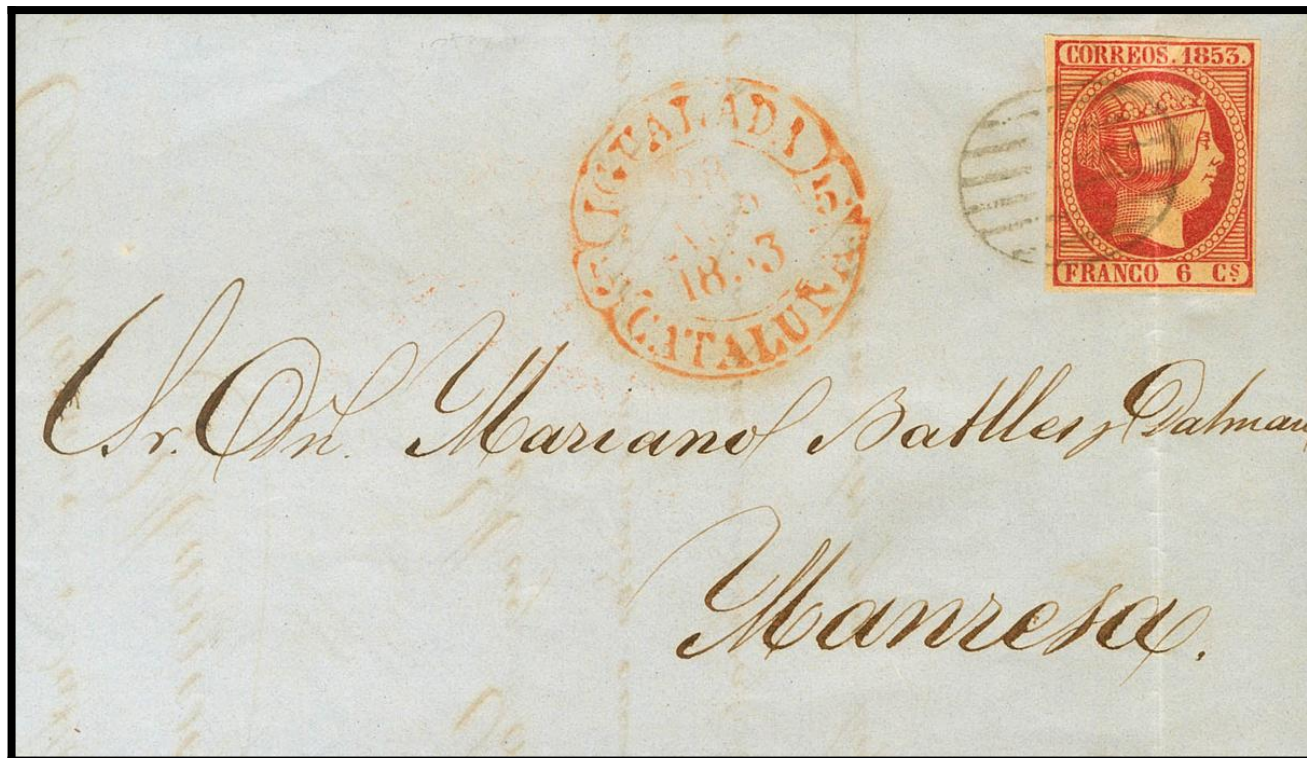 CORREOS. 1853.
FRANCO 6 Cs
IGUALADA
1853
CATALUÑA
Sr. Dn. Mariano Batlles y Dalmau
Manresa.